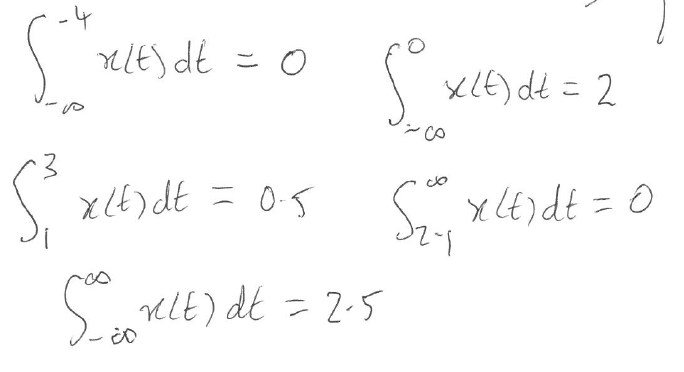 ∫_{-∞}^{-4} x(t) dt = 0
∫_{-∞}^{0} x(t) dt = 2
∫_{1}^{3} x(t) dt = 0.5
∫_{2.1}^{∞} x(t) dt = 0
∫_{-∞}^{∞} x(t) dt = 2.5